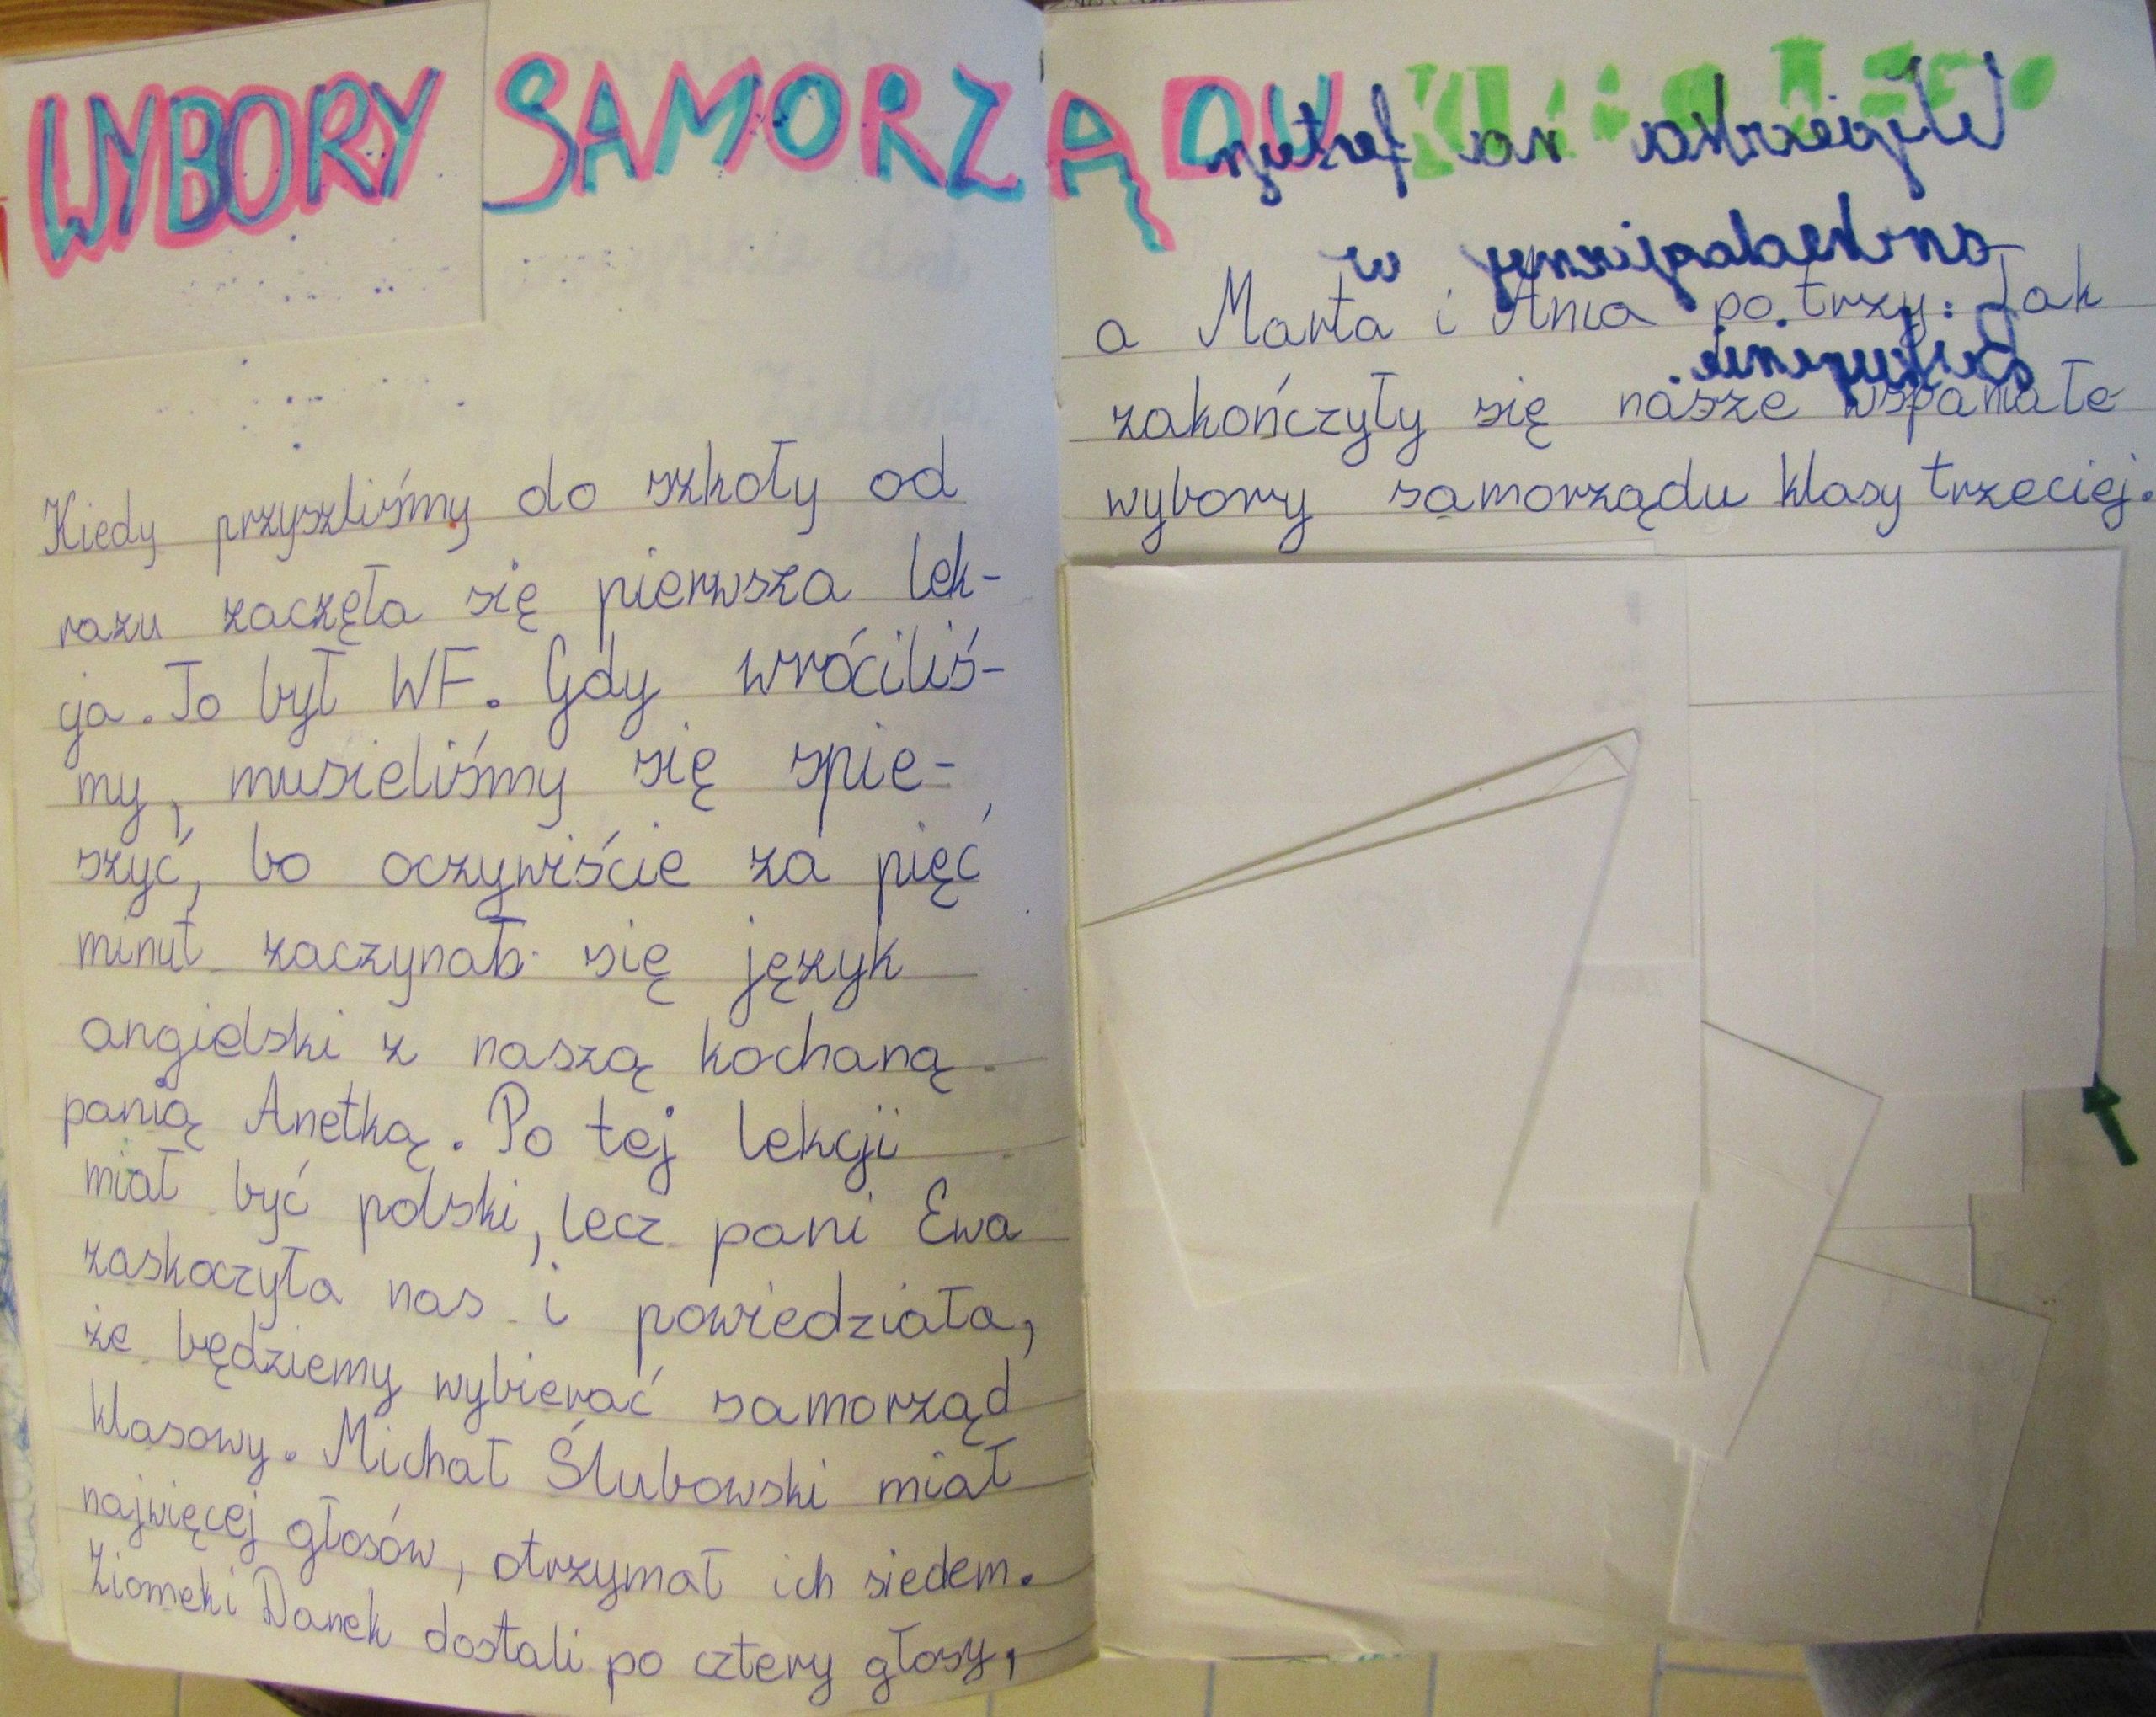 WYBORY SAMORZĄDU
Kiedy przyszliśmy do szkoły od
razu zaczęła się pierwsza lek-
cja. To był WF. Gdy wróciliś-
my, musieliśmy się spie-
szyć, bo oczywiście za pięć
minut zaczynał się język
angielski z naszą kochaną
panią Anetką. Po tej lekcji
miał być polski, lecz pani Ewa
zaskoczyła nas i powiedziała,
że będziemy wybierać samorząd
klasowy. Michał Ślubowski miał
najwięcej głosów, otrzymał ich siedem.
Ziomek i Danek dostali po cztery głosy,
a Marta i Ania po trzy. Tak
zakończyły się nasze wspaniałe
wybory samorządu klasy trzeciej.